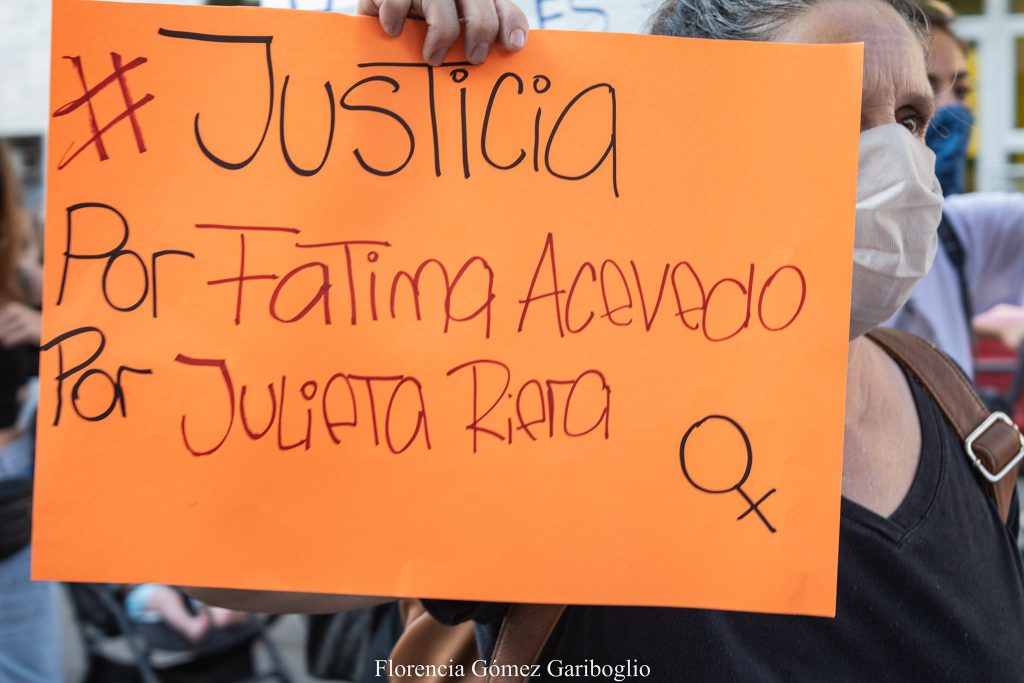 # Justicia
Por Fatima Acevedo
Por Julieta Riera
Florencia Gómez Gariboglio